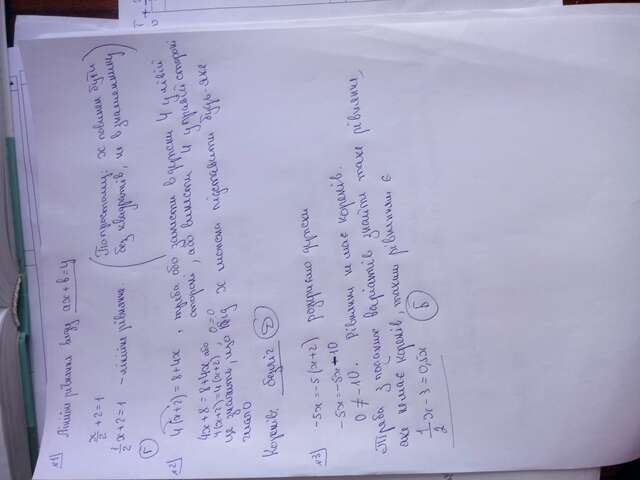 №1) Лінійні рівняння виду ax+b=y
x/2+2=1
1/2x+2=1 - лінійне рівняння.
(По простому: x повинен бути
без квадратів, не в знаменнику)
Г
№2) 4(x+2)=8+4x, треба або занести в дужки 4 у лівій
стороні, або винести 4 у правій стороні
4x+8=8+4x або
4(x+2)=4(x+2); 0=0
це значить, що під x можна підставити будь-яке
число
Коренів безліч Д
№3) -5x=-5(x+2) розкриємо дужки
-5x=-5x-10
0≠-10. Рівняння не має коренів.
Треба з поданих варіантів знайти таке рівняння,
яке не має коренів, таким рівнянням є
1/2x-3=0,5x Б